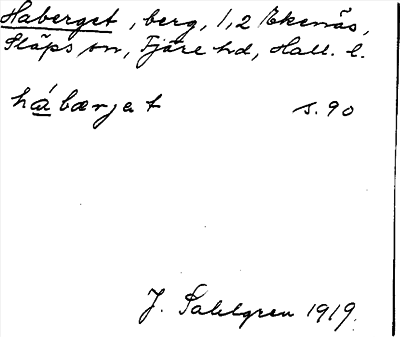 Haberget, berg, 1,2 Ekenäs,
Släps sn, Fjäre hd, Hall. l.
hábærjet s. 90
J. Sahlgren 1919.